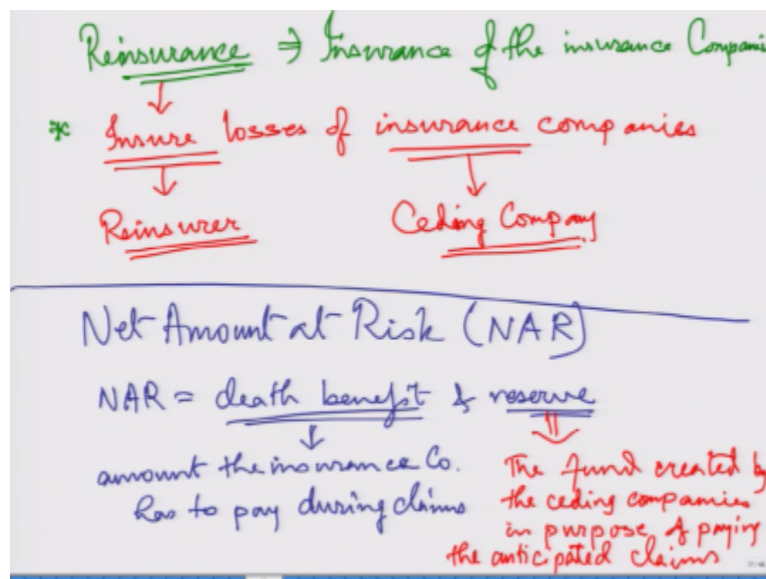 Reinsurance ⇒ Insurance of the insurance Compani
* Insure losses of insurance companies
Reinsurer Ceding Company
Net Amount at Risk (NAR)
NAR = death benefit & reserve
amount the insurance Co.
has to pay during claims
The fund created by
the ceding companies
in purpose of paying
the anticipated claims